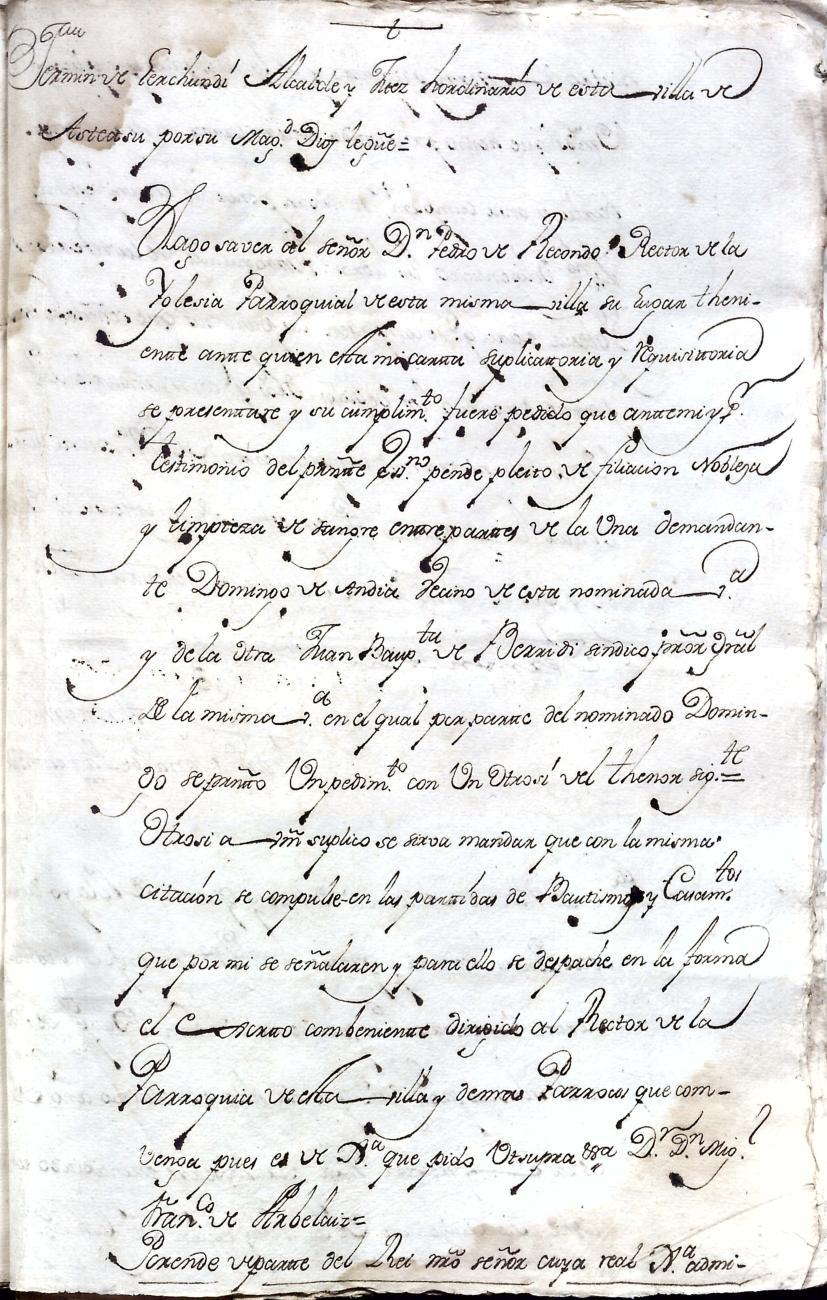 t
Fermin de Lerchundi Alcalde y Juez hordinario de esta villa de
Asteasu por su Mag.d Dios le gûe=
Hago saver al señor D.n Pedro de Recondo Rector de la
Yglesia Parroquial de esta misma villa su Lugar theni-
ente antte quien esta mi cartta suplicattoria y requisittoria
se presenttare y su cumplim.to fuere pedido que anttemi y p.r
testimonio del prntte es.no pende pleito de filiacion Nobleza
y limpieza de sangre enttre parttes de la Una demandan-
te Domingo de Andia vecino de esta nominada v.a
y de la otra Juan Baup.ta de Berridi sindico prôr grâl
de la misma v.a en el qual por partte del nominado Domin-
go se prntto Un pedim.to con Un Otrosi del thenor sig.te=
Otrosi a vm̃ suplico se sirva mandar que con la misma
citación se compulse en las parttidas de Bautismos y Casam.tos
que por mi se señalaren y para ello se despache en la forma
el Exortto combenientte dirigido al Rector de la
Parroquia de esta villa y demas Parrocos que com-
venga pues es de N.a que pido Utsupra D.r D.n Mig.l
Fran.co de Arbelaiz=
Porende de partte del Rei nrô señor cuya real N.a admi-